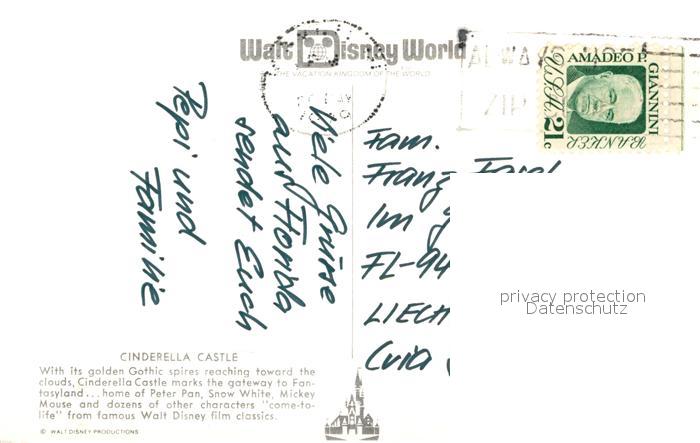 Walt Disney World
THE VACATION KINGDOM OF THE WORLD
ALWAYS USE
ZIP
AMADEO P. GIANNINI
U.S.A. 21c
BANKER
Viele Grüsse
aus Florida
sendet Euch
Pepi und
Familie
Fam.
Franz
Im
FL-94
LIECH
(via
privacy protection
Datenschutz
CINDERELLA CASTLE
With its golden Gothic spires reaching toward the
clouds, Cinderella Castle marks the gateway to Fan-
tasyland... home of Peter Pan, Snow White, Mickey
Mouse and dozens of other characters "come-to-
life" from famous Walt Disney film classics.
© WALT DISNEY PRODUCTIONS